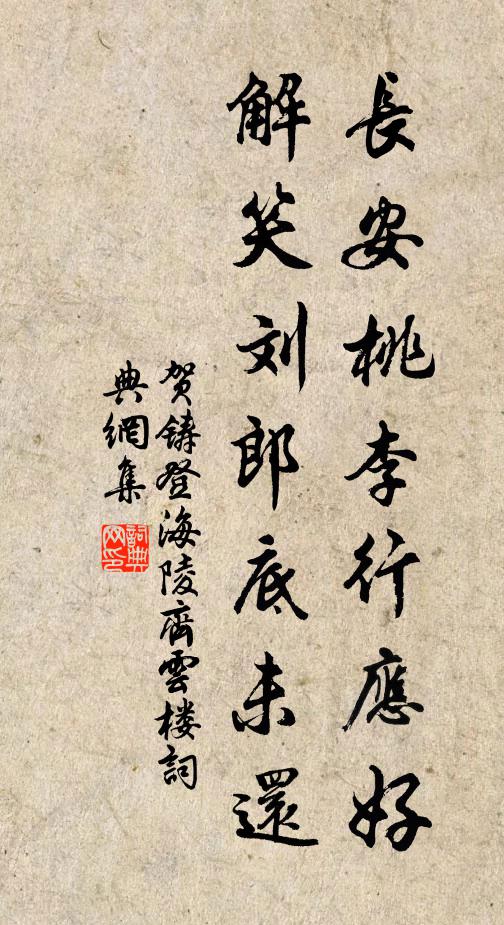 長安桃李行應好
解笑刘郎底未還
贺鑄登海陵齊雲楼詞
典網集
詞典网印